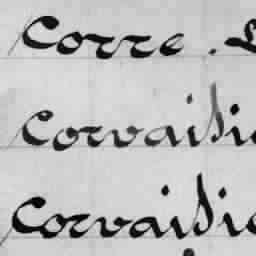 Corre. L
Corvaisie
Corvaisie